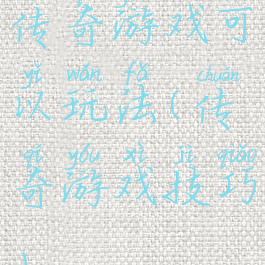 传奇游戏可
yǐ wán fǎ chuán
以玩法(传
qí yóu xì jì qiǎo
奇游戏技巧
)